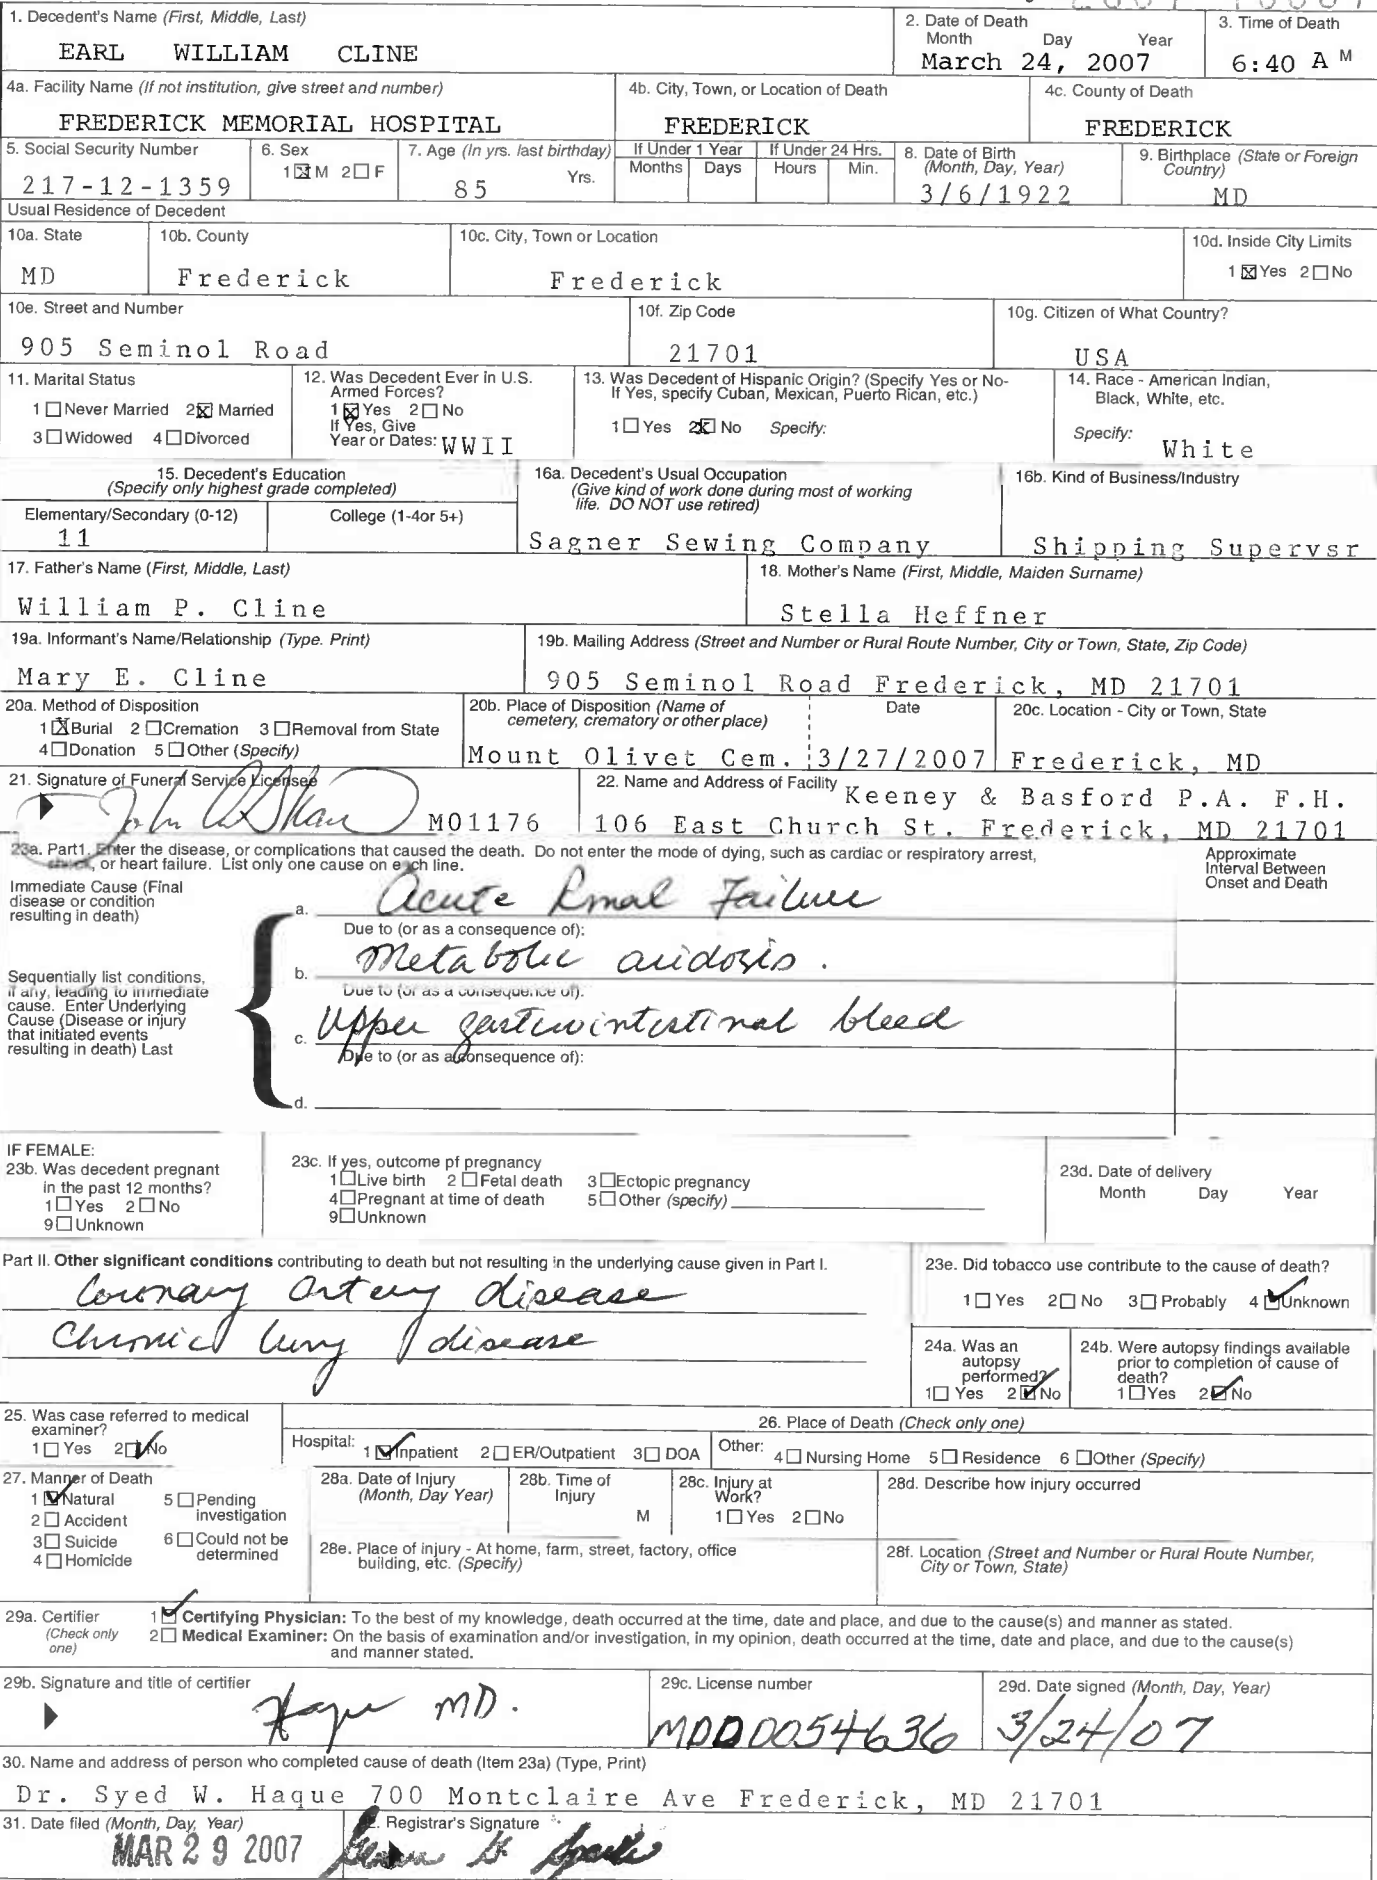 1. Decedent's Name (First, Middle, Last)
EARL WILLIAM CLINE
2. Date of Death
Month Day Year
March 24, 2007
3. Time of Death
6:40 A M
4a. Facility Name (If not institution, give street and number)
FREDERICK MEMORIAL HOSPITAL
4b. City, Town, or Location of Death
FREDERICK
4c. County of Death
FREDERICK
5. Social Security Number
217-12-1359
6. Sex
1☒M 2☐F
7. Age (In yrs. last birthday)
85 Yrs.
If Under 1 Year
Months Days
If Under 24 Hrs.
Hours Min.
8. Date of Birth
(Month, Day, Year)
3/6/1922
9. Birthplace (State or Foreign
Country)
MD
Usual Residence of Decedent
10a. State
MD
10b. County
Frederick
10c. City, Town or Location
Frederick
10d. Inside City Limits
1☒Yes 2☐No
10e. Street and Number
905 Seminol Road
10f. Zip Code
21701
10g. Citizen of What Country?
USA
11. Marital Status
1☐Never Married 2☒Married
3☐Widowed 4☐Divorced
12. Was Decedent Ever in U.S.
Armed Forces?
1☒Yes 2☐No
If Yes, Give
Year or Dates: WWII
13. Was Decedent of Hispanic Origin? (Specify Yes or No-
If Yes, specify Cuban, Mexican, Puerto Rican, etc.)
1☐Yes 2☒No Specify:
14. Race - American Indian,
Black, White, etc.
Specify: White
15. Decedent's Education
(Specify only highest grade completed)
Elementary/Secondary (0-12)
11
College (1-4or 5+)
16a. Decedent's Usual Occupation
(Give kind of work done during most of working
life. DO NOT use retired)
Sagner Sewing Company
16b. Kind of Business/Industry
Shipping Supervsr
17. Father's Name (First, Middle, Last)
William P. Cline
18. Mother's Name (First, Middle, Maiden Surname)
Stella Heffner
19a. Informant's Name/Relationship (Type. Print)
Mary E. Cline
19b. Mailing Address (Street and Number or Rural Route Number, City or Town, State, Zip Code)
905 Seminol Road Frederick, MD 21701
20a. Method of Disposition
1☒Burial 2☐Cremation 3☐Removal from State
4☐Donation 5☐Other (Specify)
20b. Place of Disposition (Name of
cemetery, crematory or other place)
Mount Olivet Cem.
Date
3/27/2007
20c. Location - City or Town, State
Frederick, MD
21. Signature of Funeral Service Licensee
M01176
22. Name and Address of Facility Keeney & Basford P.A. F.H.
106 East Church St. Frederick, MD 21701
23a. Part1. Enter the disease, or complications that caused the death. Do not enter the mode of dying, such as cardiac or respiratory arrest,
shock, or heart failure. List only one cause on each line.
Approximate
Interval Between
Onset and Death
Immediate Cause (Final
disease or condition
resulting in death)
a. Acute Renal Failure
Due to (or as a consequence of):
Sequentially list conditions,
if any, leading to immediate
cause. Enter Underlying
Cause (Disease or injury
that initiated events
resulting in death) Last
b. Metabolic acidosis.
Due to (or as a consequence of):
c. Upper gastrointestinal bleed
Due to (or as a consequence of):
d.
IF FEMALE:
23b. Was decedent pregnant
in the past 12 months?
1☐Yes 2☐No
9☐Unknown
23c. If yes, outcome pf pregnancy
1☐Live birth 2☐Fetal death 3☐Ectopic pregnancy
4☐Pregnant at time of death 5☐Other (specify)
9☐Unknown
23d. Date of delivery
Month Day Year
Part II. Other significant conditions contributing to death but not resulting in the underlying cause given in Part I.
Coronary artery disease
Chronic lung disease
23e. Did tobacco use contribute to the cause of death?
1☐Yes 2☐No 3☐Probably 4☑Unknown
24a. Was an
autopsy
performed?
1☐Yes 2☑No
24b. Were autopsy findings available
prior to completion of cause of
death?
1☐Yes 2☑No
25. Was case referred to medical
examiner?
1☐Yes 2☑No
26. Place of Death (Check only one)
Hospital: 1☑Inpatient 2☐ER/Outpatient 3☐DOA
Other: 4☐Nursing Home 5☐Residence 6☐Other (Specify)
27. Manner of Death
1☑Natural 5☐Pending
investigation
2☐Accident
3☐Suicide 6☐Could not be
determined
4☐Homicide
28a. Date of Injury
(Month, Day Year)
28b. Time of
Injury
M
28c. Injury at
Work?
1☐Yes 2☐No
28d. Describe how injury occurred
28e. Place of injury - At home, farm, street, factory, office
building, etc. (Specify)
28f. Location (Street and Number or Rural Route Number,
City or Town, State)
29a. Certifier
(Check only
one)
1☑Certifying Physician: To the best of my knowledge, death occurred at the time, date and place, and due to the cause(s) and manner as stated.
2☐Medical Examiner: On the basis of examination and/or investigation, in my opinion, death occurred at the time, date and place, and due to the cause(s)
and manner stated.
29b. Signature and title of certifier
Haque MD.
29c. License number
MDD0054636
29d. Date signed (Month, Day, Year)
3/24/07
30. Name and address of person who completed cause of death (Item 23a) (Type, Print)
Dr. Syed W. Haque 700 Montclaire Ave Frederick, MD 21701
31. Date filed (Month, Day, Year)
MAR 29 2007
Registrar's Signature